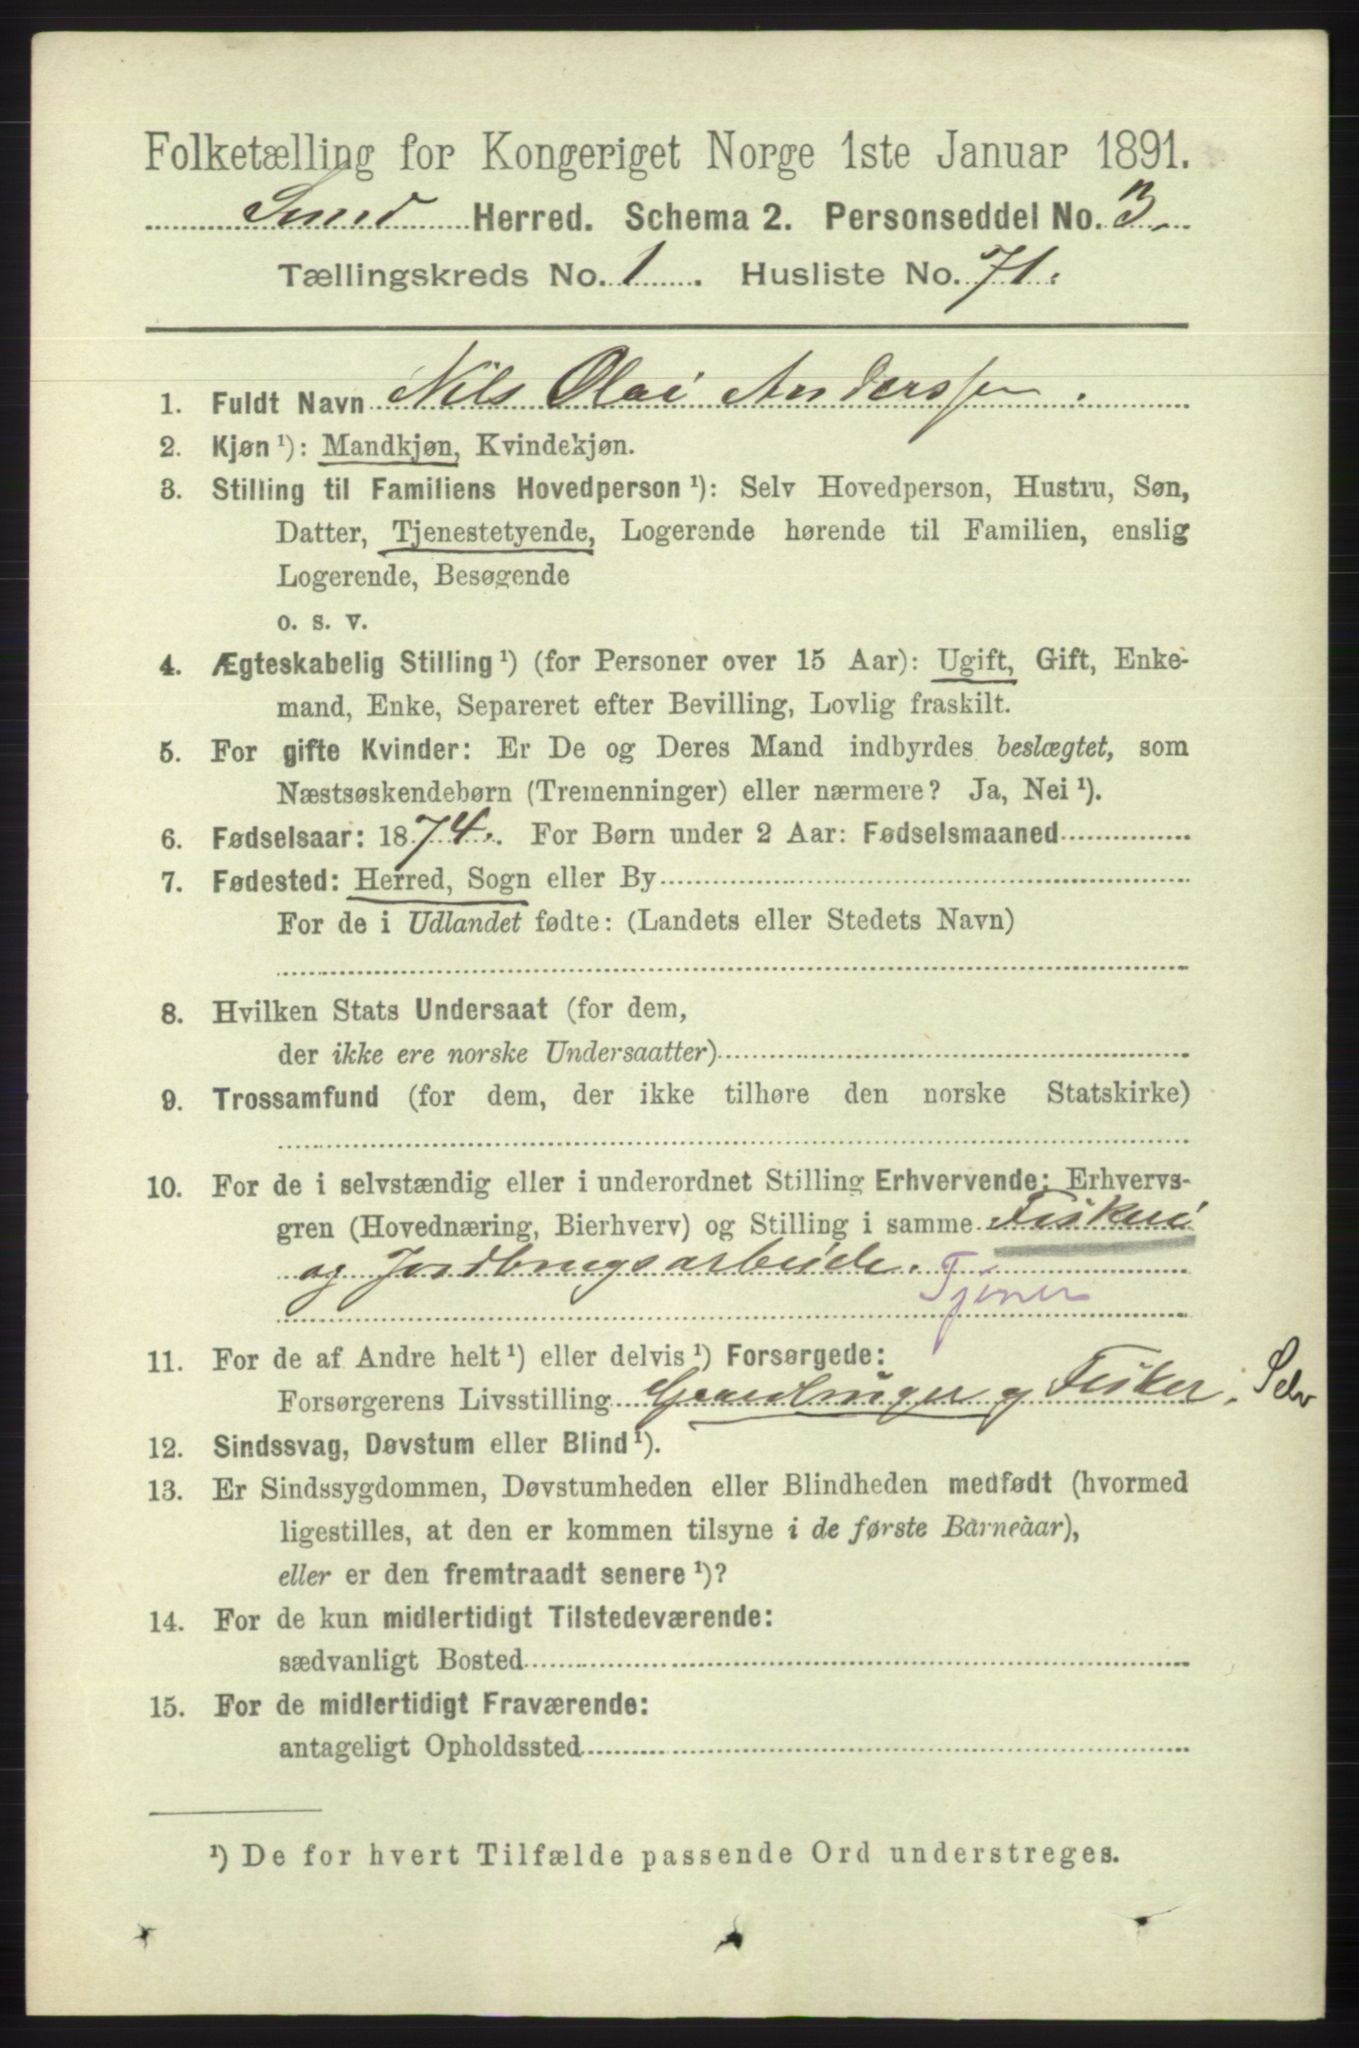 Folketælling for Kongeriget Norge 1ste Januar 1891.
Sund Herred. Schema 2. Personseddel No. 3.
Tællingskreds No. 1. Husliste No. 71.
1. Fuldt Navn Nils Olai Anderssen.
2. Kjøn ¹): Mandkjøn, Kvindekjøn.
3. Stilling til Familiens Hovedperson ¹): Selv Hovedperson, Hustru, Søn,
Datter, Tjenestetyende, Logerende hørende til Familien, enslig
Logerende, Besøgende
o. s. v.
4. Ægteskabelig Stilling ¹) (for Personer over 15 Aar): Ugift, Gift, Enke-
mand, Enke, Separeret efter Bevilling, Lovlig fraskilt.
5. For gifte Kvinder: Er De og Deres Mand indbyrdes beslægtet, som
Næstsøskendebørn (Tremenninger) eller nærmere? Ja, Nei ¹).
6. Fødselsaar: 1874. For Børn under 2 Aar: Fødselsmaaned
7. Fødested: Herred, Sogn eller By
For de i Udlandet fødte: (Landets eller Stedets Navn)
8. Hvilken Stats Undersaat (for dem,
der ikke ere norske Undersaatter)
9. Trossamfund (for dem, der ikke tilhøre den norske Statskirke)
10. For de i selvstændig eller i underordnet Stilling Erhvervende: Erhvervs-
gren (Hovednæring, Bierhverv) og Stilling i samme Fiskeri
og Jordbrugsarbeide.
Tjener
11. For de af Andre helt ¹) eller delvis ¹) Forsørgede:
Forsørgerens Livsstilling Gaardbruger og Fisker. Selv
12. Sindssvag, Døvstum eller Blind ¹).
13. Er Sindssygdommen, Døvstumheden eller Blindheden medfødt (hvormed
ligestilles, at den er kommen tilsyne i de første Barneaar),
eller er den fremtraadt senere ¹)?
14. For de kun midlertidigt Tilstedeværende:
sædvanligt Bosted
15. For de midlertidigt Fraværende:
antageligt Opholdssted
¹) De for hvert Tilfælde passende Ord understreges.